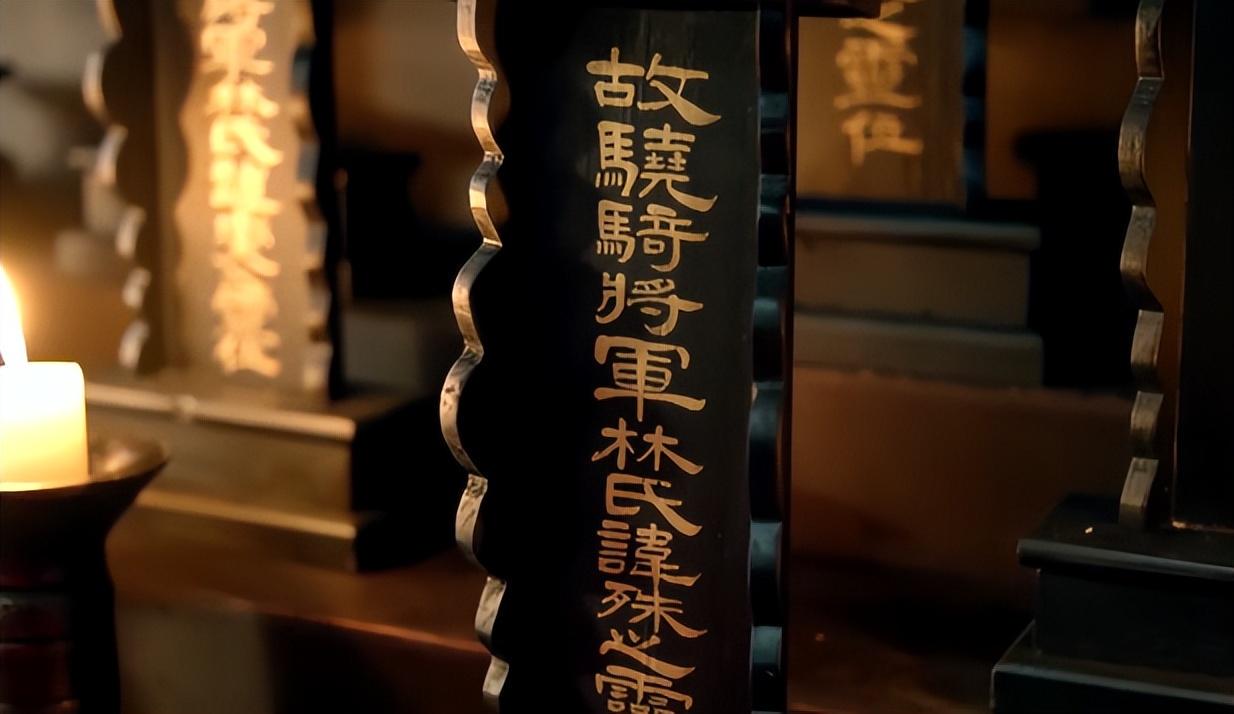 故驍騎將軍林氏諱殊之靈
之靈位